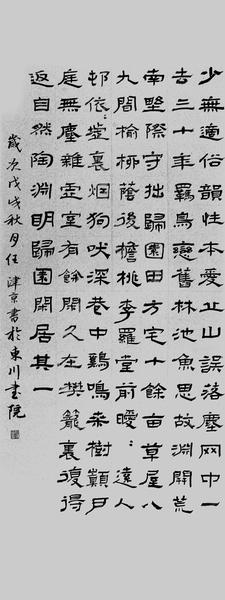 少無適俗韻性本愛丘山誤落塵网中一
去三十年羈鳥戀舊林池魚思故淵開荒
南埜際守拙歸園田方宅十餘亩草屋八
九間榆柳蔭後檐桃李羅堂前曖：遠人
邨依：墟裏烟狗吠深巷中鷄鳴桑樹顛戶
庭無塵雜虛室有餘閑久在樊籠裏復得
返自然陶淵明歸園閑居其一
歲次戊戌秋月任津京書於東川書院